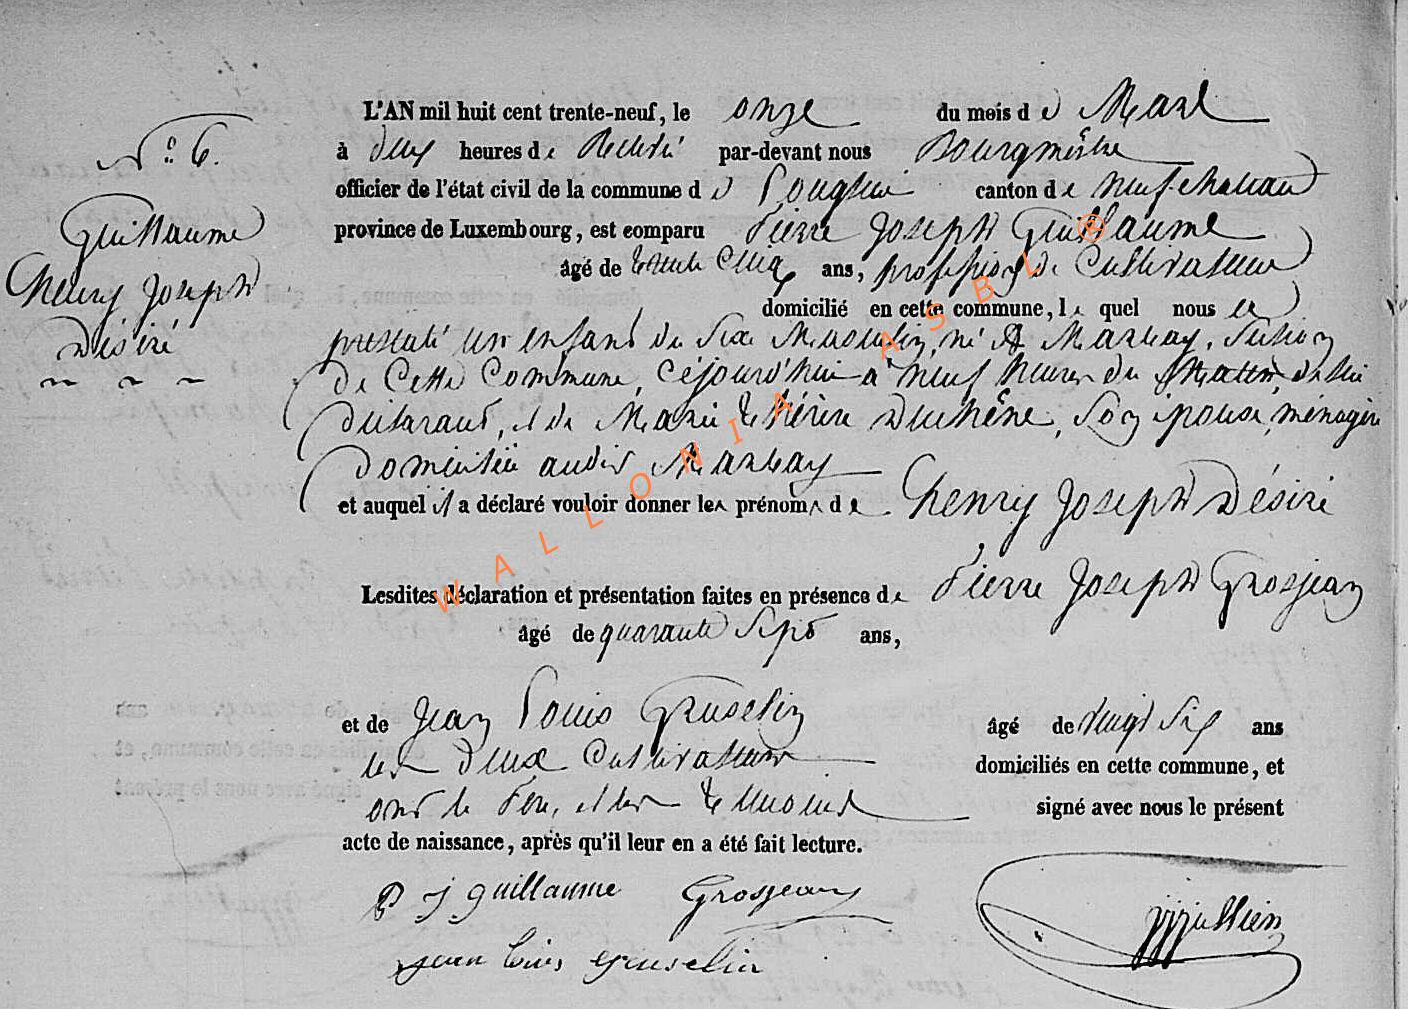 N.º 6.
Guillaume
Henry Joseph
Désiré
L'AN mil huit cent trente-neuf, le onze du mois de Mars
à deux heures de Relevée par-devant nous Bourgmestre
officier de l'état civil de la commune de Longlier canton de Neufchateau
province de Luxembourg, est comparu Pierre Joseph Guillaume
âgé de trente ans, profession de Cultivateur
domicilié en cette commune, le quel nous a
presenté un enfant du Sexe Masculin, né à Massay, Section
de Cette Commune, cejourd'hui à neuf heures du Matin de lui
déclarant, et de Marie Thérèse Duchêne, Son épouse, ménagère
domiciliée audit Massay
et auquel il a déclaré vouloir donner les prénoms de Henry Joseph Désiré
Lesdites déclaration et présentation faites en présence de Pierre Joseph Grosjean
âgé de quarante Sept ans,
et de Jean Louis Gruselin âgé de vingt Six ans
les deux Cultivateurs domiciliés en cette commune, et
ont le Père, et les témoins signé avec nous le présent
acte de naissance, après qu'il leur en a été fait lecture.
P J guillaume Grosjean
jean louis gruselin jullien
WALLONIA ASBL ®